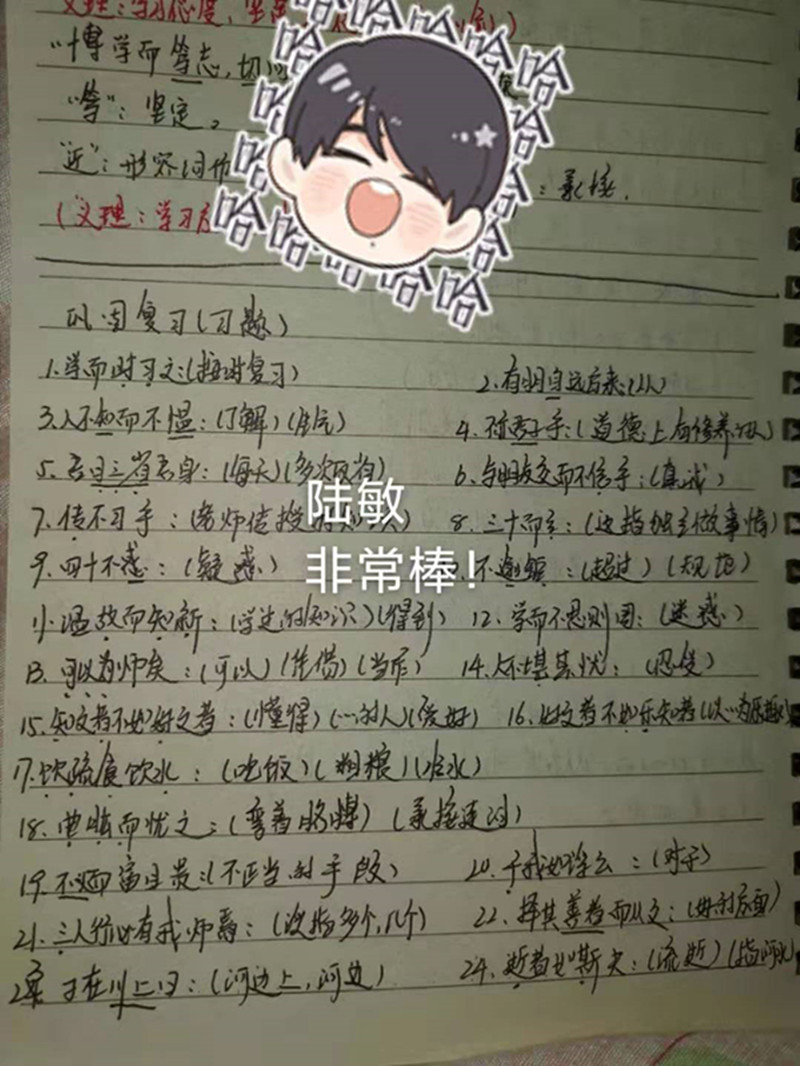 义理：学习态度，坚
"博学而笃志，切
"笃"：坚定。
"近"：形容词作
（义理：学习
哈哈哈哈哈哈哈哈哈哈哈哈哈哈哈哈
巩固复习（习题）
1.学而时习之：（按时复习） 2.有朋自远方来：（从）
3.人不知而不愠：（了解）（生气） 4.君子乎：（道德上有修养的人）
5.吾日三省吾身：（每天）（多次反省） 6.与朋友交而不信乎：（真诚）
7.传不习乎：（老师传授 8.三十而立：（这指独立做事情）
陆敏
9.四十不惑：（疑惑） 不逾矩：（超过）（规矩）
非常棒！
11.温故而知新：（学过的知识）（得到） 12.学而不思则罔：（迷惑）
13.可以为师矣：（可以）（凭借）（当作） 14.人不堪其忧：（忍受）
15.知之者不如好之者：（懂得）（…的人）（爱好） 16.好之者不如乐之者（以…为乐趣）
17.饭疏食饮水：（吃饭）（粗粮）（冷水）
18.曲肱而枕之：（弯着胳膊）
19.不义而富且贵：（不正当的手段） 20.于我如浮云：（对于）
21.三人行必有我师焉：（泛指多个，几个） 22.择其善者而从之：（好的方面）
23.子在川上曰：（河边上，河边） 24.逝者如斯夫：（流逝）（指河水）